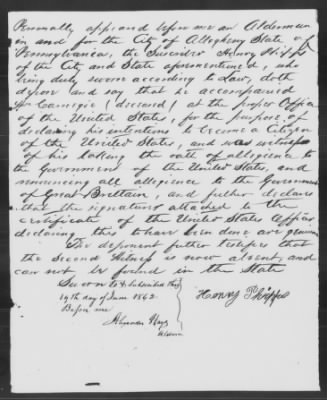 Personally appeared before me an Alderman
in and for the City of Allegheny State of
Pennsylvania, the Suscriber Henry Phipps
of the City and State aforementioned, who
being duly sworn according to Law, doth
depose and say that he accompanied
Wm Carnegie (deceased) at the proper Office
of the United States, for the purpose of
declaring his intentions to become a Citizen
of the United States, and was witness
of his taking the oath of allegience to
the Government of the United States and
renouncing all allegience to the Government
of Great Brittain, and futher declares
that the signature attached to the
certificate of the United States Officer
declaring this to have been done are genuine
The deponent futher testifies that
the Second Witness is now absent and
can not be found in the State
Sworn to & Subscribed this
19th day of June 1862
Before me
Henry Phipps
Alexander Hays
Alderm